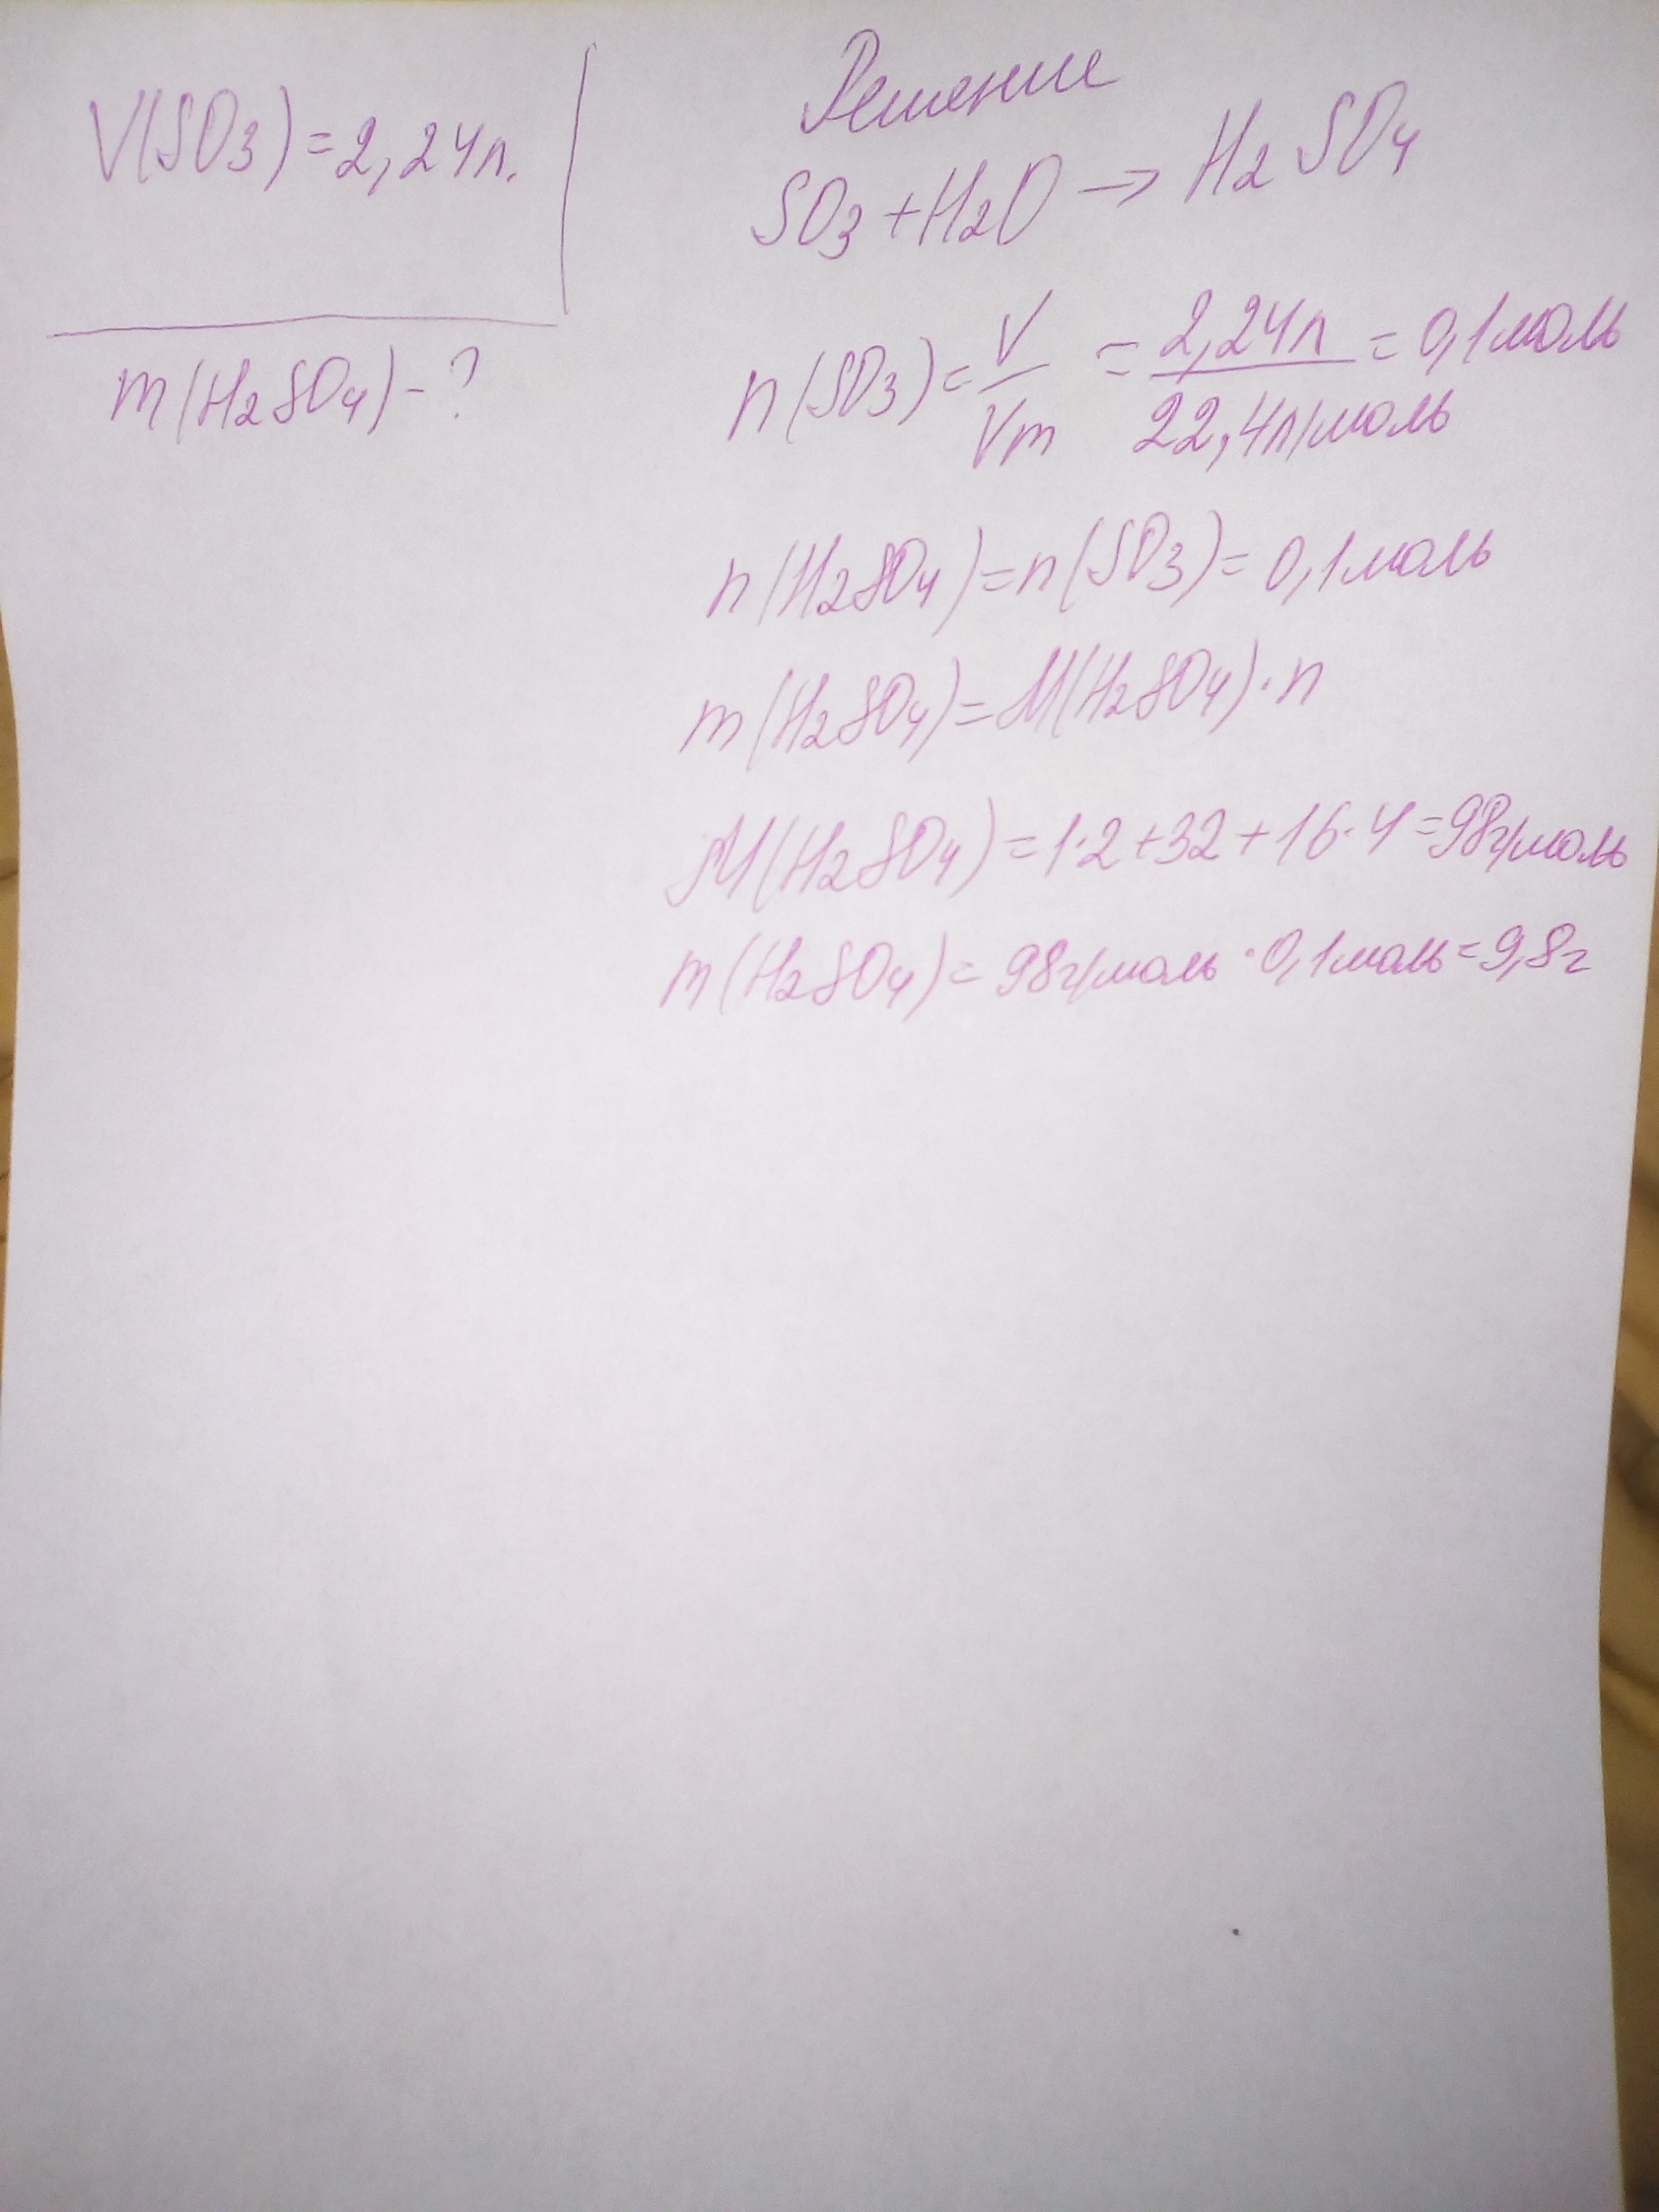 V(SO3)=2,24л.
m(H2SO4)-?
Решение
SO3+H2O→H2SO4
n(SO3)=V/Vm=2,24л/22,4л/моль=0,1моль
n(H2SO4)=n(SO3)=0,1моль
m(H2SO4)=M(H2SO4)·n
M(H2SO4)=1·2+32+16·4=98г/моль
m(H2SO4)=98г/моль·0,1моль=9,8г